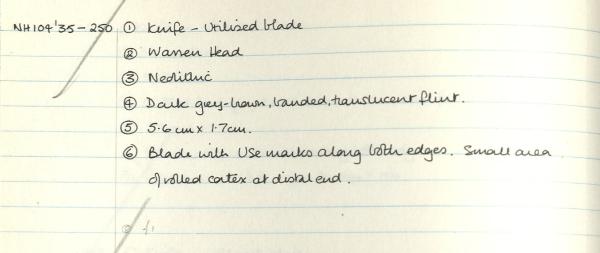 NH104'35-250 ① Knife - Utilised blade
② Warren Head
③ Neolithic
④ Dark grey-brown, banded, translucent flint.
⑤ 5.6 cm x 1.7cm.
⑥ Blade with use marks along both edges. Small area
of rolled cortex at distal end.